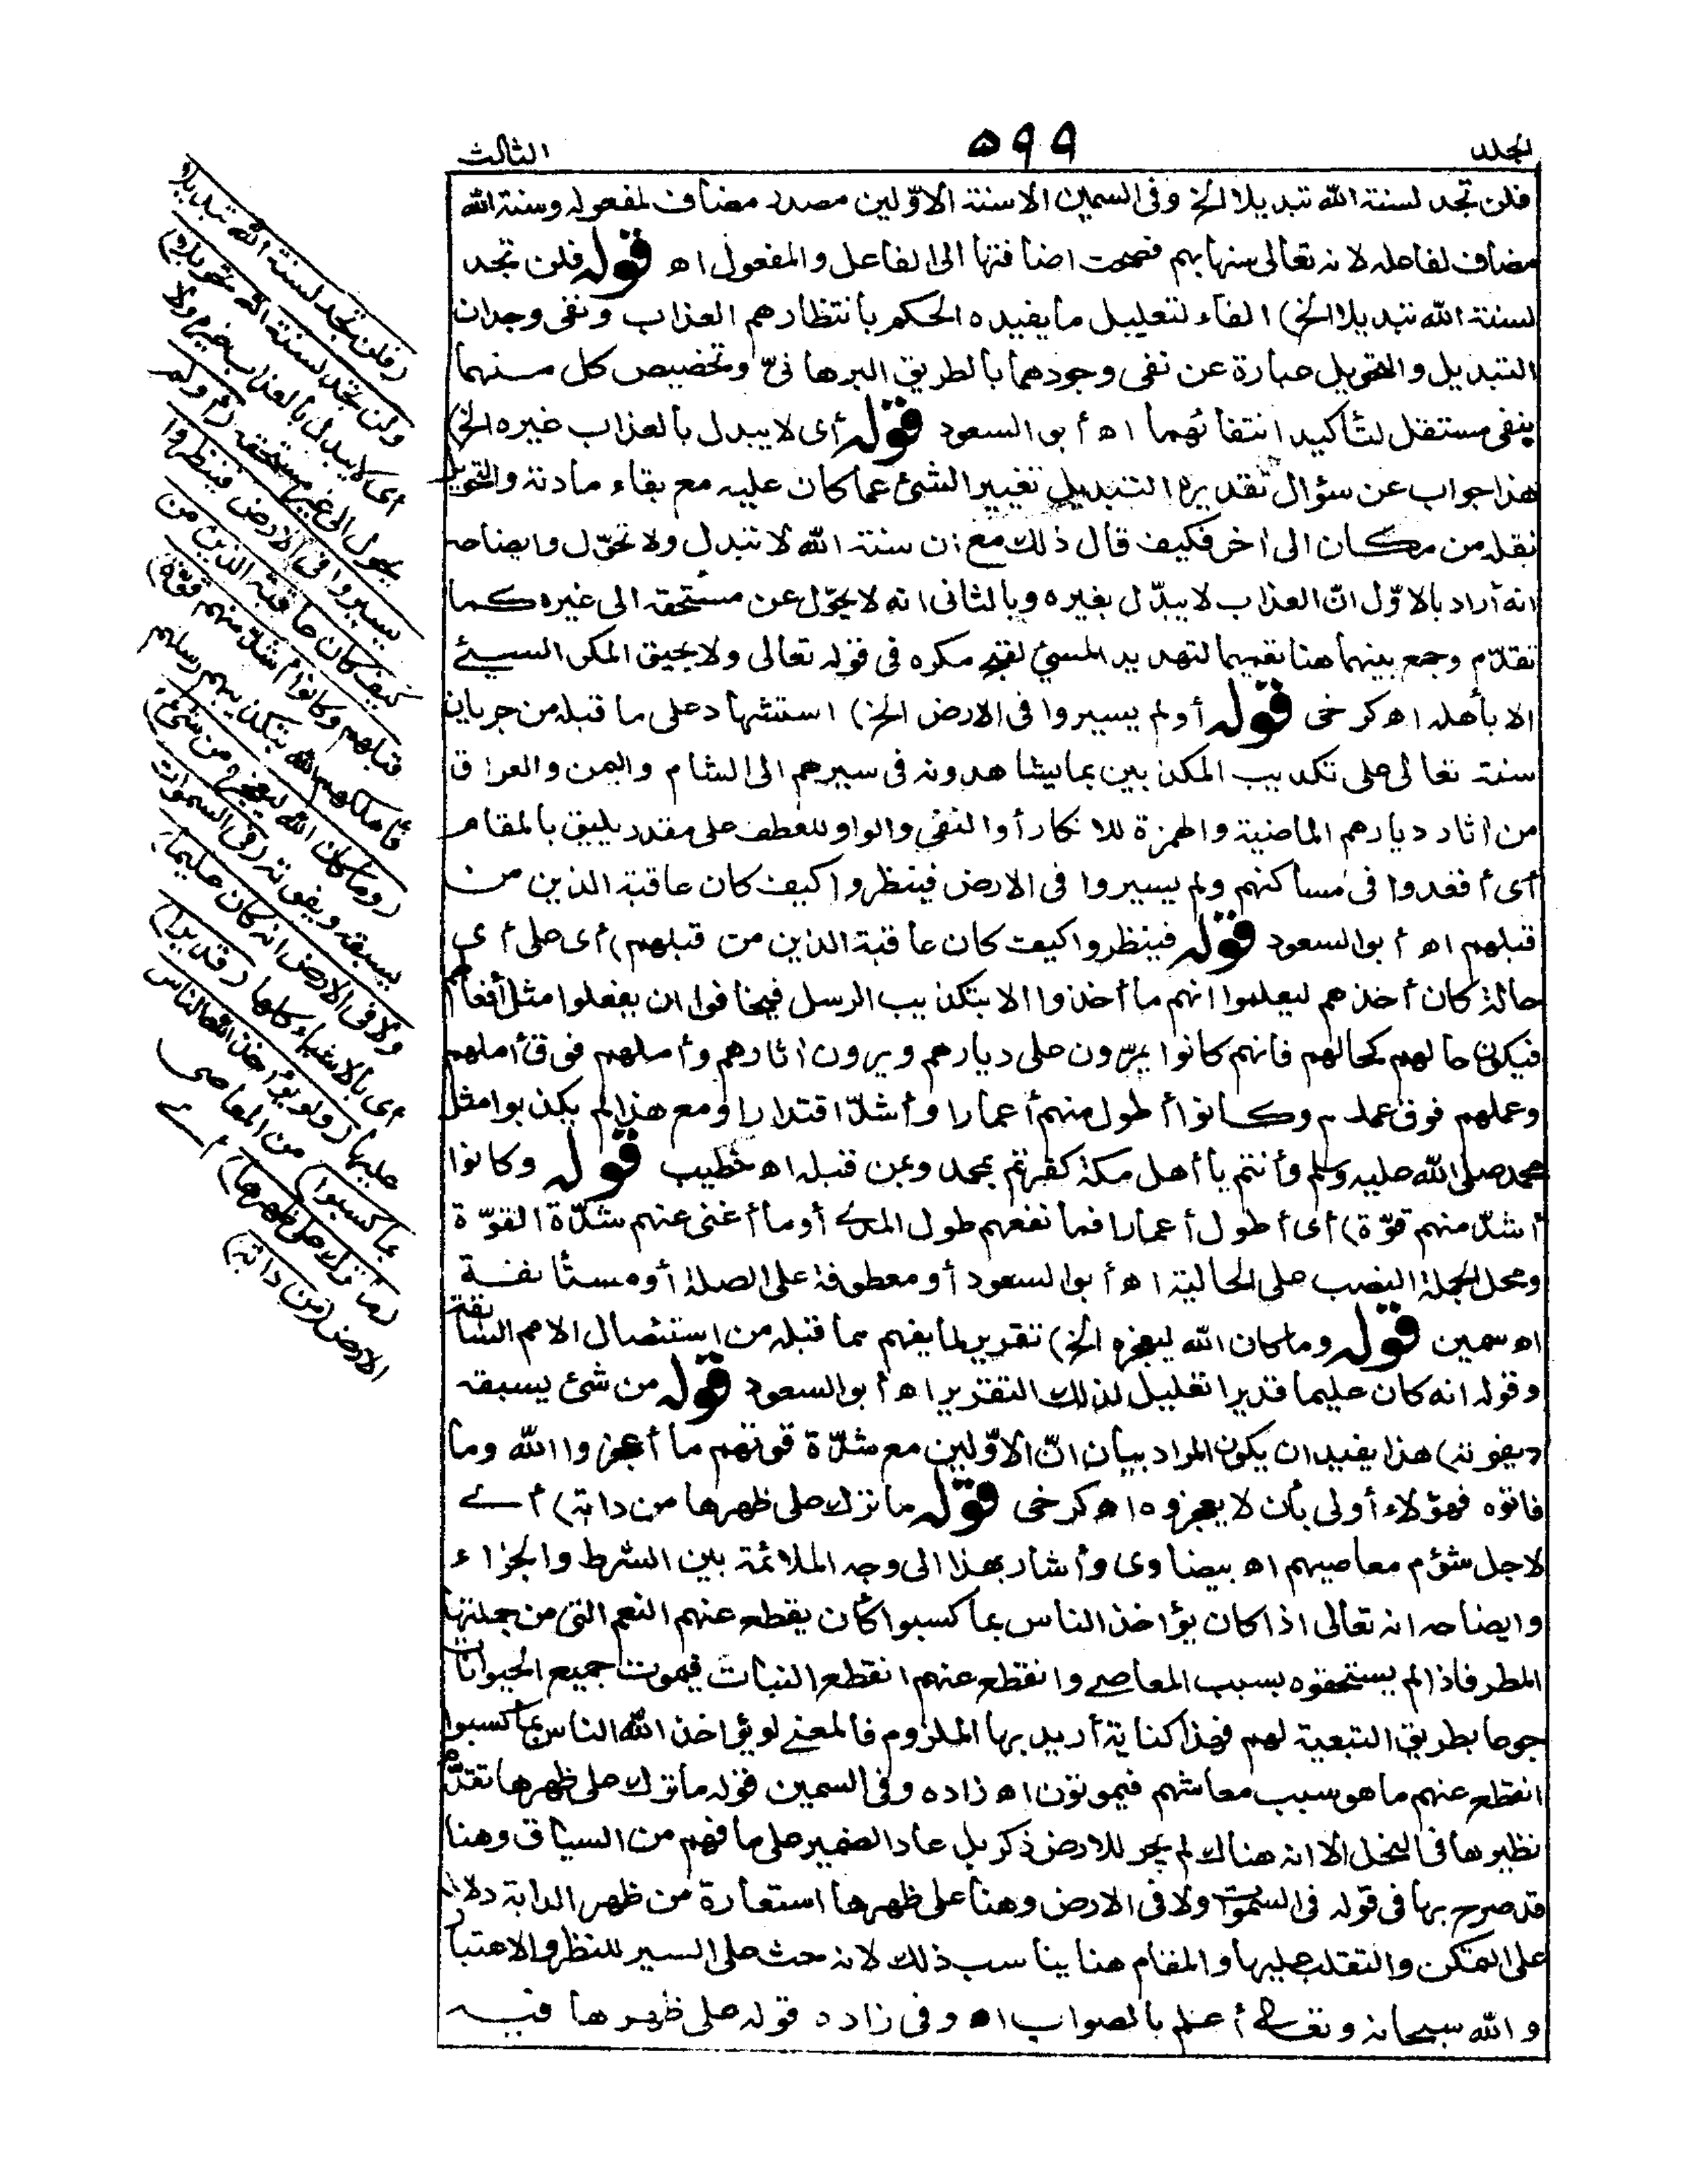 المجلد
٥٩٩
الثالث
فلن تجد لسنة الله تبديلا الخ وفى السمين الاسنة الاوّلين مصدر مضاف لمفعوله وسنة الله
مضاف لفاعله لانه تعالى سنها بهم فصحت اضافتها الى الفاعل والمفعول اه قوله فلن تجد
لسنة الله تبديلا الخ) الفاء لتعليل ما يفيده الحكم بأنتظارهم العذاب ونفى وجدان
التبديل والتحويل عبارة عن نفى وجودهما بالطريق البرهانىّ وتخصيص كل منهما
بنفى مستقل لتأكيد انتفائهما اه أبو السعود قوله أى لا يبدل بالعذاب غيره الخ)
هذا جواب عن سؤال تقديره التبديل تغيير الشئ عما كان عليه مع بقاء مادته والتحويل
نقله من مكان الى اخر فكيف قال ذلك مع ان سنة الله لا تتبدل ولا تحوّل وايضاحه
انه أراد بالاوّل انّ العذاب لا يبدّل بغيره وبالثانى انه لا يحوّل عن مستحقه الى غيره كما
تقدّم وجمع بينهما هنا تعميما لتهديد المسئ لقبح مكره فى قوله تعالى ولا يحيق المكر السيئ
الا بأهله اه كرخى قوله أولم يسيروا فى الارض الخ) استشهاد على ما قبله من جريان
سنته تعالى على تكذيب المكذبين بما يشاهدونه فى سيرهم الى الشام واليمن والعراق
من اثار ديارهم الماضية والهمزة للانكار أو النفى والواو للعطف على مقدر يليق بالمقام
أى أقعدوا فى مساكنهم ولم يسيروا فى الارض فينظروا كيف كان عاقبة الذين من
قبلهم اه أبو السعود قوله فينظروا كيف كان عاقبة الذين من قبلهم) أى على أى
حالة كان أخذهم ليعلموا انهم ما أخذوا الا بتكذيب الرسل فيخافوا ان يفعلوا مثل أفعالهم
فيكون حالهم كحالهم فانهم كانوا يمرّون على ديارهم ويرون اثارهم وأملهم فوق أملهم
وعملهم فوق عملهم وكانوا أطول منهم أعمارا وأشدّ اقتدارا ومع هذا لم يكذبوا مثل
محمد صلى الله عليه وسلم وأنتم يا أهل مكة كفرتم بمحمد وبمن قبله اه خطيب قوله وكانوا
أشدّ منهم قوّة) أى أطول أعمارا فما نفعهم طول المدى أو ما أغنى عنهم شدّة القوّة
ومحل الجملة النصب على الحالية اه أبو السعود أو معطوفة على الصلة أو مستأنفة
اه سمين قوله وما كان الله ليعجزه الخ) تقرير لما يفهم مما قبله من استئصال الامم السابقة
وقوله انه كان عليما قديرا تعليل لذلك التقرير اه أبو السعود قوله من شئ يسبقه
ويفوته) هذا يفيد ان يكون المراد بيان انّ الاوّلين مع شدّة قوتهم ما أعجزوا الله وما
فاتوه فهؤلاء أولى بأن لا يعجزوه اه كرخى قوله ما ترك على ظهرها من دابة) أى
لاجل شؤم معاصيهم اه بيضاوى وأشار بهذا الى وجه الملائمة بين الشرط والجزاء
وايضاحه انه تعالى اذا كان يؤاخذ الناس بما كسبوا كأن يقطع عنهم النعم التى من جملتها
المطر فاذا لم يستحقوه بسبب المعاصى وانقطع عنهم انقطع النبات فيموت جميع الحيوانات
جوعا بطريق التبعية لهم فهذا كناية أريد بها الملزوم فالمعنى لو يؤاخذ الله الناس بما كسبوا
انقطع عنهم ما هو سبب معاشهم فيموتون اه زاده وفى السمين قوله ما ترك على ظهرها تقدّم
نظيرها فى النحل الا انه هناك لم يجر للارض ذكر بل عاد الضمير على ما فهم من السياق وهنا
قد صرح بها فى قوله فى السموات ولا فى الارض وهنا على ظهرها استعارة من ظهر الدابة دلالة
على التمكن والتقلب عليها والمقام هنا يناسب ذلك لانه حث على السير للنظر والاعتبار
والله سبحانه وتعالى أعلم بالصواب اه وفى زاده قوله على ظهرها فيه
(فلن تجد لسنة الله تبديلا
ولن تجد لسنة الله تحويلا)
أى لا يبدل بالعذاب غيره ولا
يحول الى غير مستحقه (أولم
يسيروا فى الارض فينظروا
كيف كان عاقبة الذين من
قبلهم وكانوا أشدّ منهم قوّة)
فأهلكهم الله بتكذيبهم رسلهم
(وما كان الله ليعجزه من شئ)
يسبقه ويفوته (فى السموات
ولا فى الارض انه كان عليما)
أى بالاشياء كلها (قديرا)
عليها (ولو يؤاخذ الله الناس
بما كسبوا) من المعاصى
(ما ترك على ظهرها) أى
الارض (من دابة)